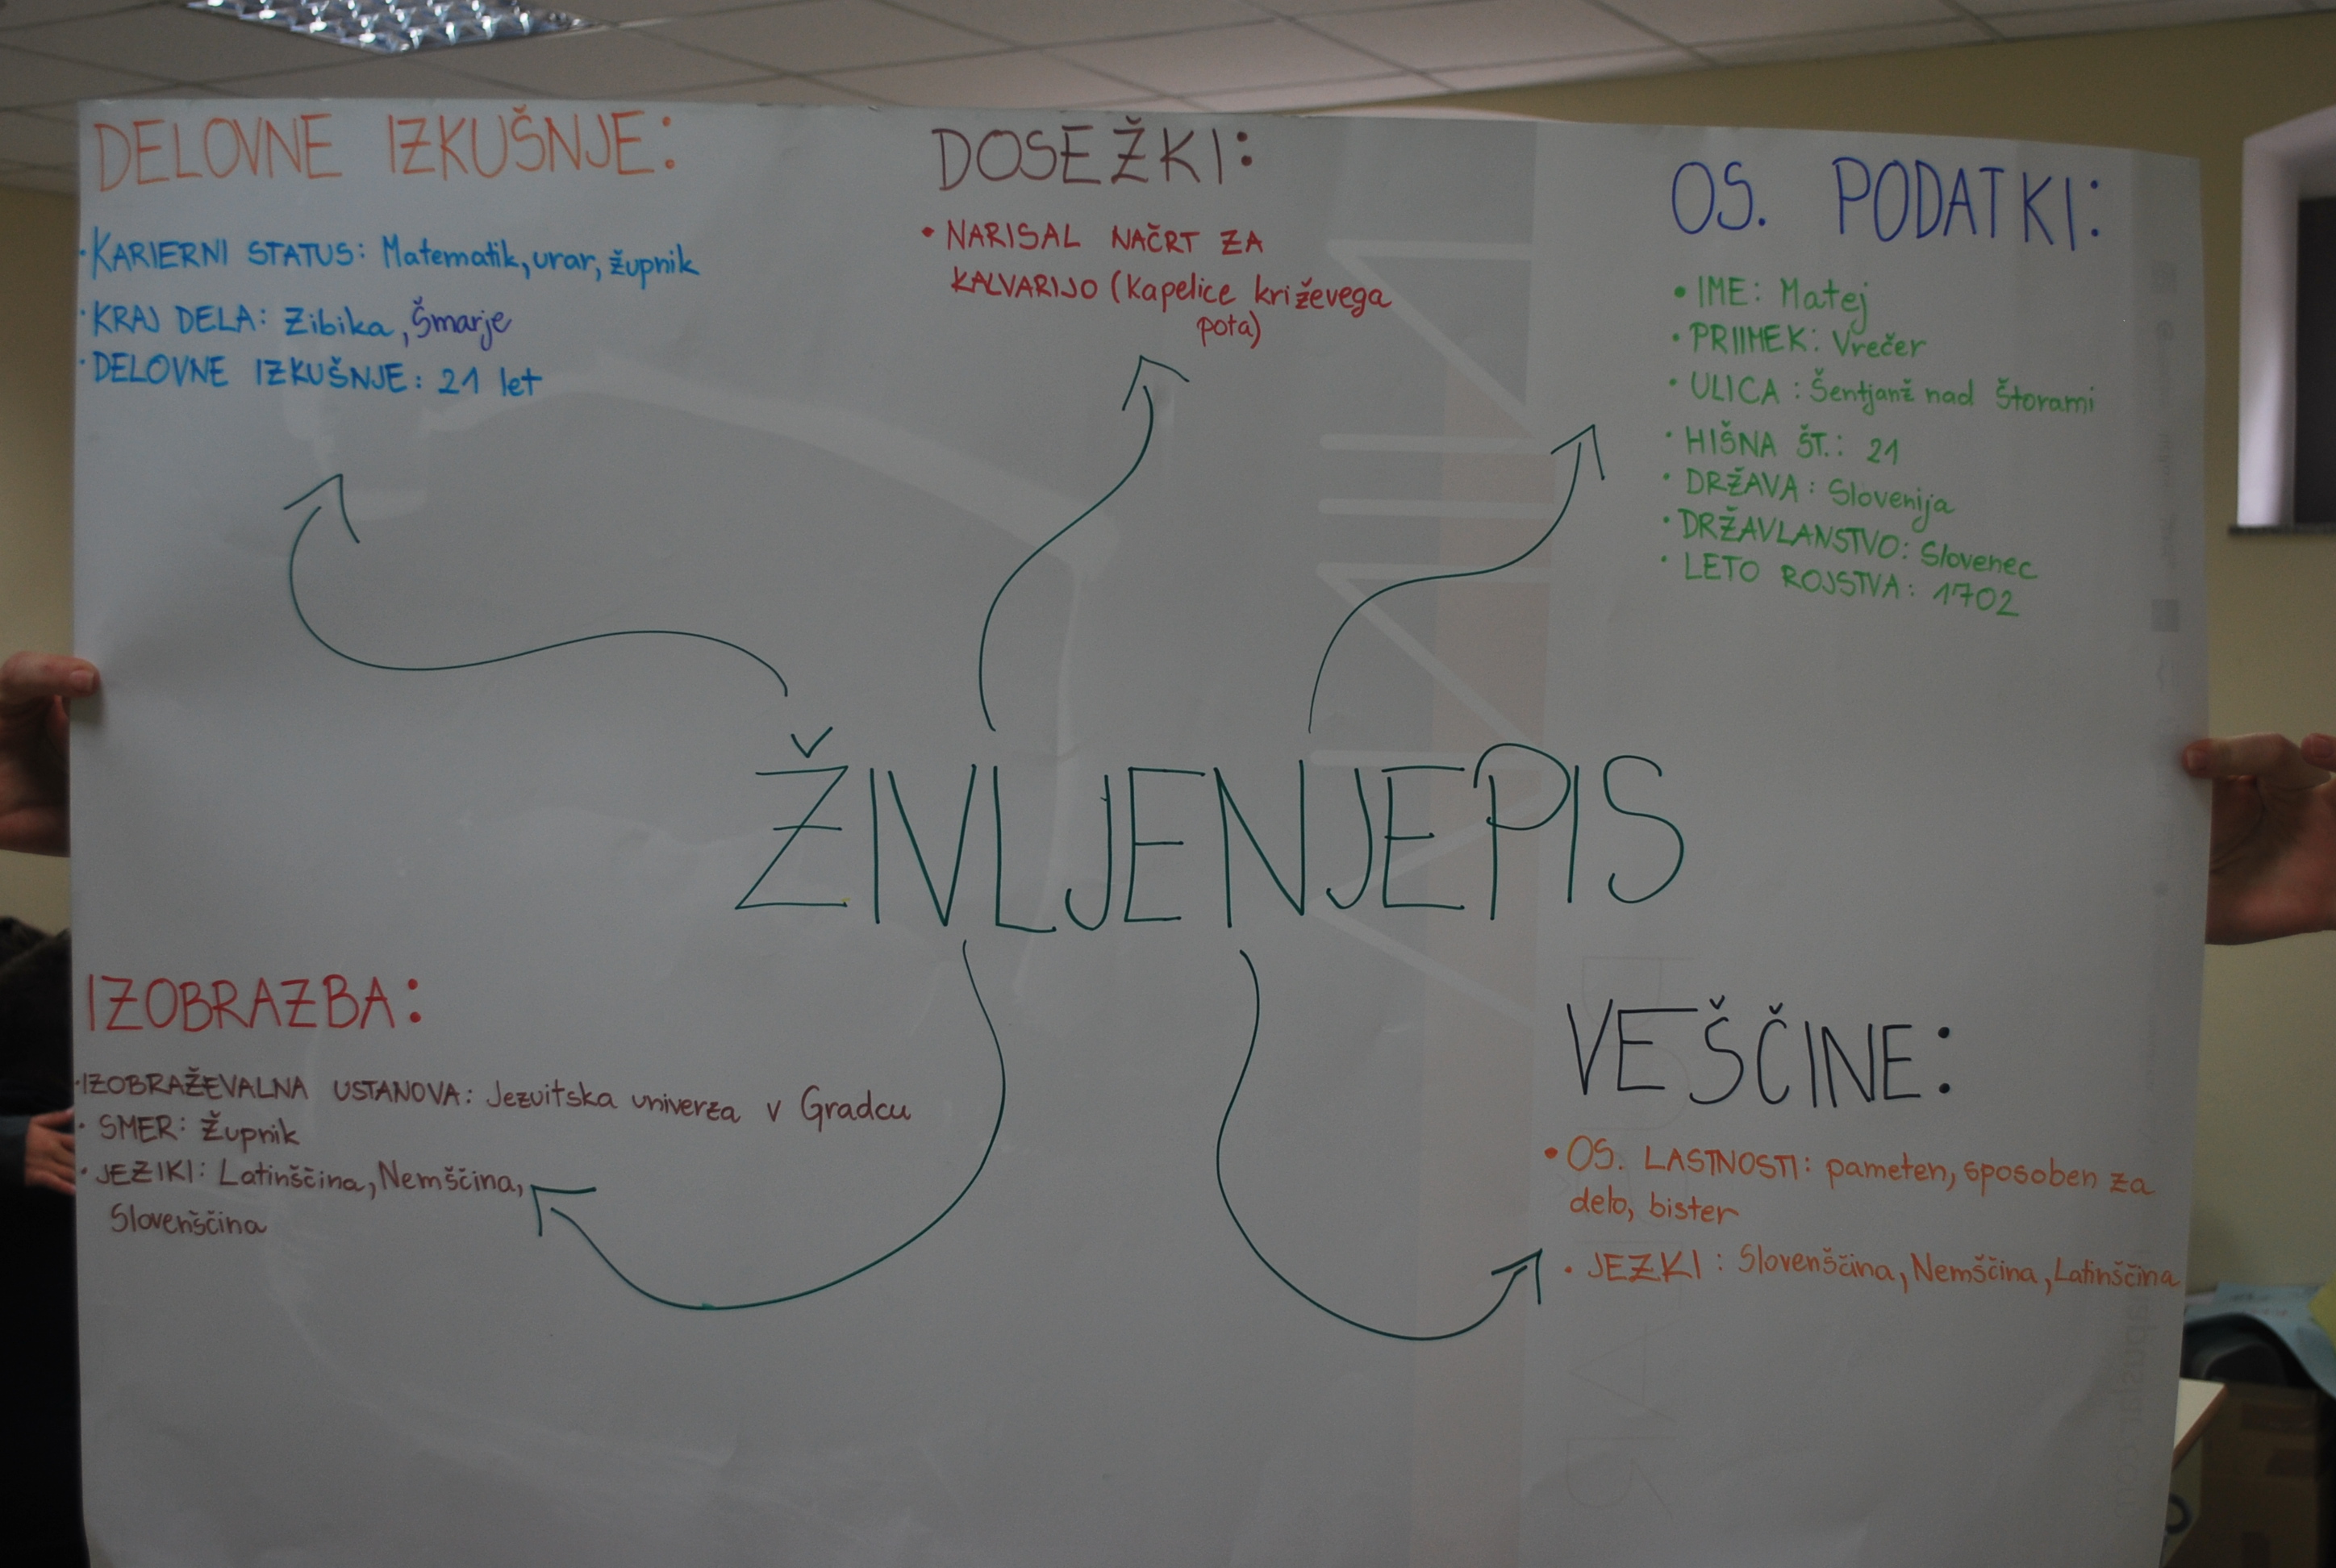 DELOVNE IZKUŠNJE:
• KARIERNI STATUS: Matematik, urar, župnik
• KRAJ DELA: Zibika, Šmarje
• DELOVNE IZKUŠNJE: 21 let
DOSEŽKI:
• NARISAL NAČRT ZA
KALVARIJO (Kapelice križevega
pota)
OS. PODATKI:
• IME: Matej
• PRIIMEK: Vrečer
• ULICA: Šentjanž nad Štorami
• HIŠNA ŠT.: 21
• DRŽAVA: Slovenija
• DRŽAVLANSTVO: Slovenec
• LETO ROJSTVA: 1702
ŽIVLJENJEPIS
IZOBRAZBA:
• IZOBRAŽEVALNA USTANOVA: Jezuitska univerza v Gradcu
• SMER: Župnik
• JEZIKI: Latinščina, Nemščina,
Slovenščina
VEŠČINE:
• OS. LASTNOSTI: pameten, sposoben za
delo, bister
• JEZKI: Slovenščina, Nemščina, Latinščina